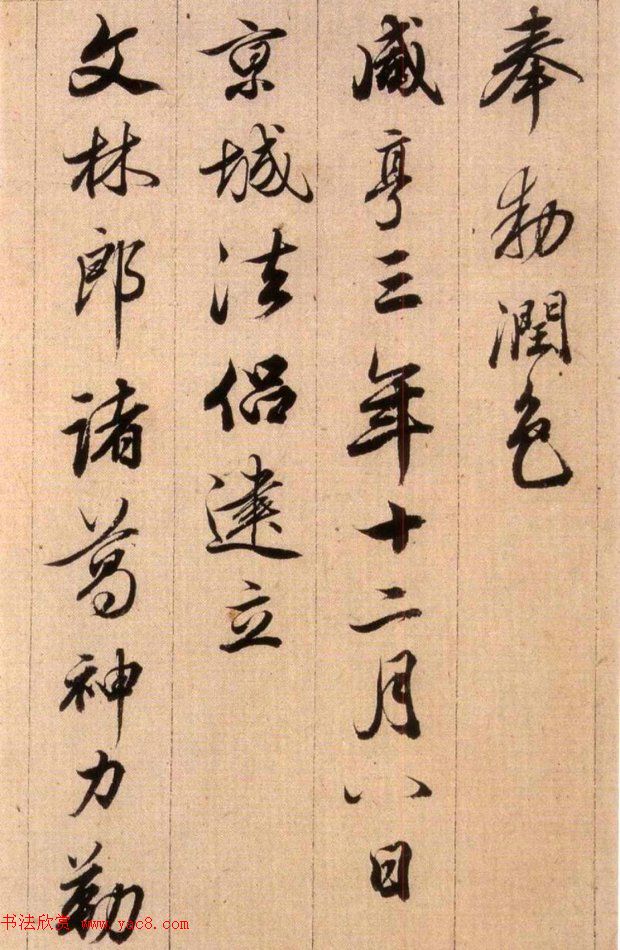 奉勅潤色
咸亨三年十二月八日
京城法侣建立
文林郎諸葛神力勒
书法欣赏 www.yac8.com